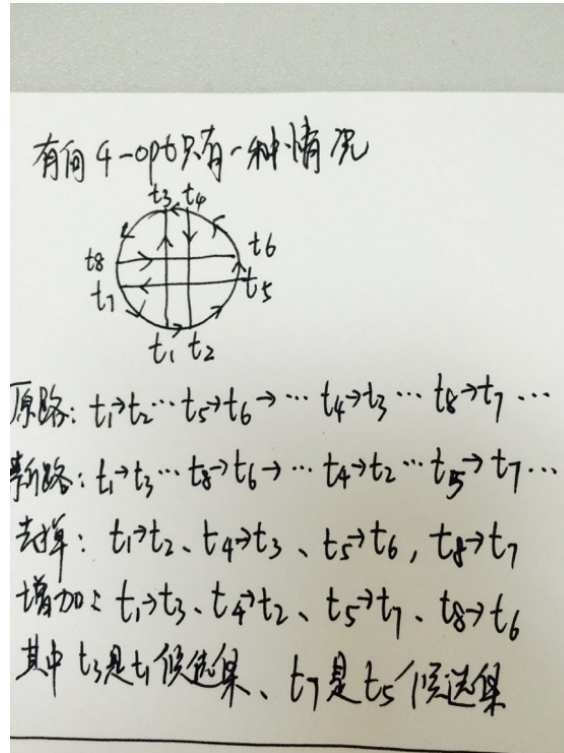 有向4-opt只有一种情况
t3 t4
t8 t6
t7 t5
t1 t2
原路: t1→t2…t5→t6→…t4→t3…t8→t7…
新路: t1→t3…t8→t6→…t4→t2…t5→t7…
去掉: t1→t2、t4→t3、t5→t6, t8→t7
增加: t1→t3、t4→t2、t5→t7、t8→t6
其中t3是t1候选集、t7是t5候选集